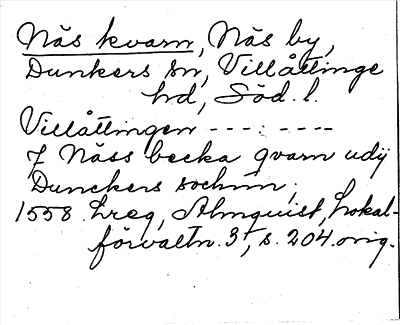 Näs kvarn, Näs by,
Dunkers sn, Villåttinge
hd, Söd. l.
Villåttingen --- : ----
J Näss becka qvarn udij
Dunckers sochnn;
1558 Lreg, Almquist, Lokal-
förvaltn. 3, s. 204. orig.